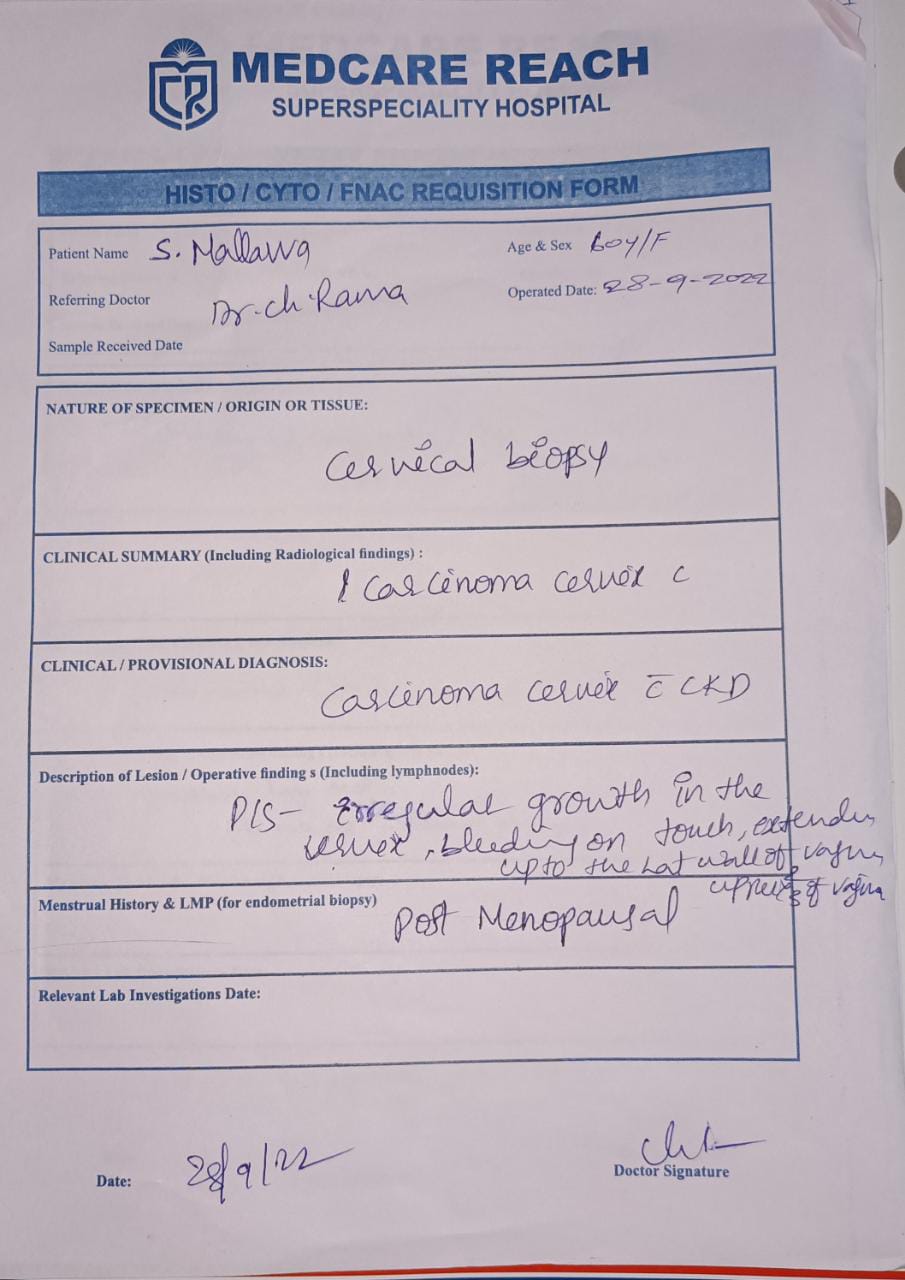 CR
MEDCARE REACH
SUPERSPECIALITY HOSPITAL
HISTO / CYTO / FNAC REQUISITION FORM
Patient Name S. Mallawa Age & Sex 60y/F
Referring Doctor Dr. Ch. Rama Operated Date: 28-9-2022
Sample Received Date
NATURE OF SPECIMEN / ORIGIN OR TISSUE:
Cervical biopsy
CLINICAL SUMMARY (Including Radiological findings) :
Carcinoma cervix c
CLINICAL / PROVISIONAL DIAGNOSIS:
Carcinoma cervix c̄ CKD
Description of Lesion / Operative finding s (Including lymphnodes):
P/S - Irregular growth in the
cervix, bleeding on touch, extending
upto the Lat wall of vagina,
of vagina
Menstrual History & LMP (for endometrial biopsy)
Post Menopausal
Relevant Lab Investigations Date:
Date: 28/9/22
Doctor Signature